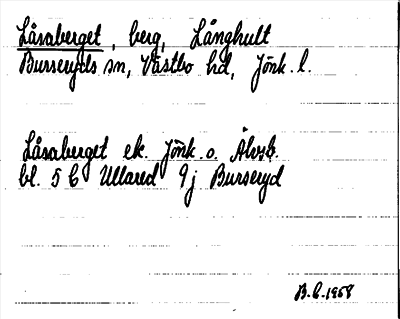 Låsaberget, berg, Långhult
Burseryds sn, Västbo hd, Jönk. l.
Låsaberget ek. Jönk. o. Älvsb.
bl. 5 C Ullared 9j Burseryd
B.C. 1958